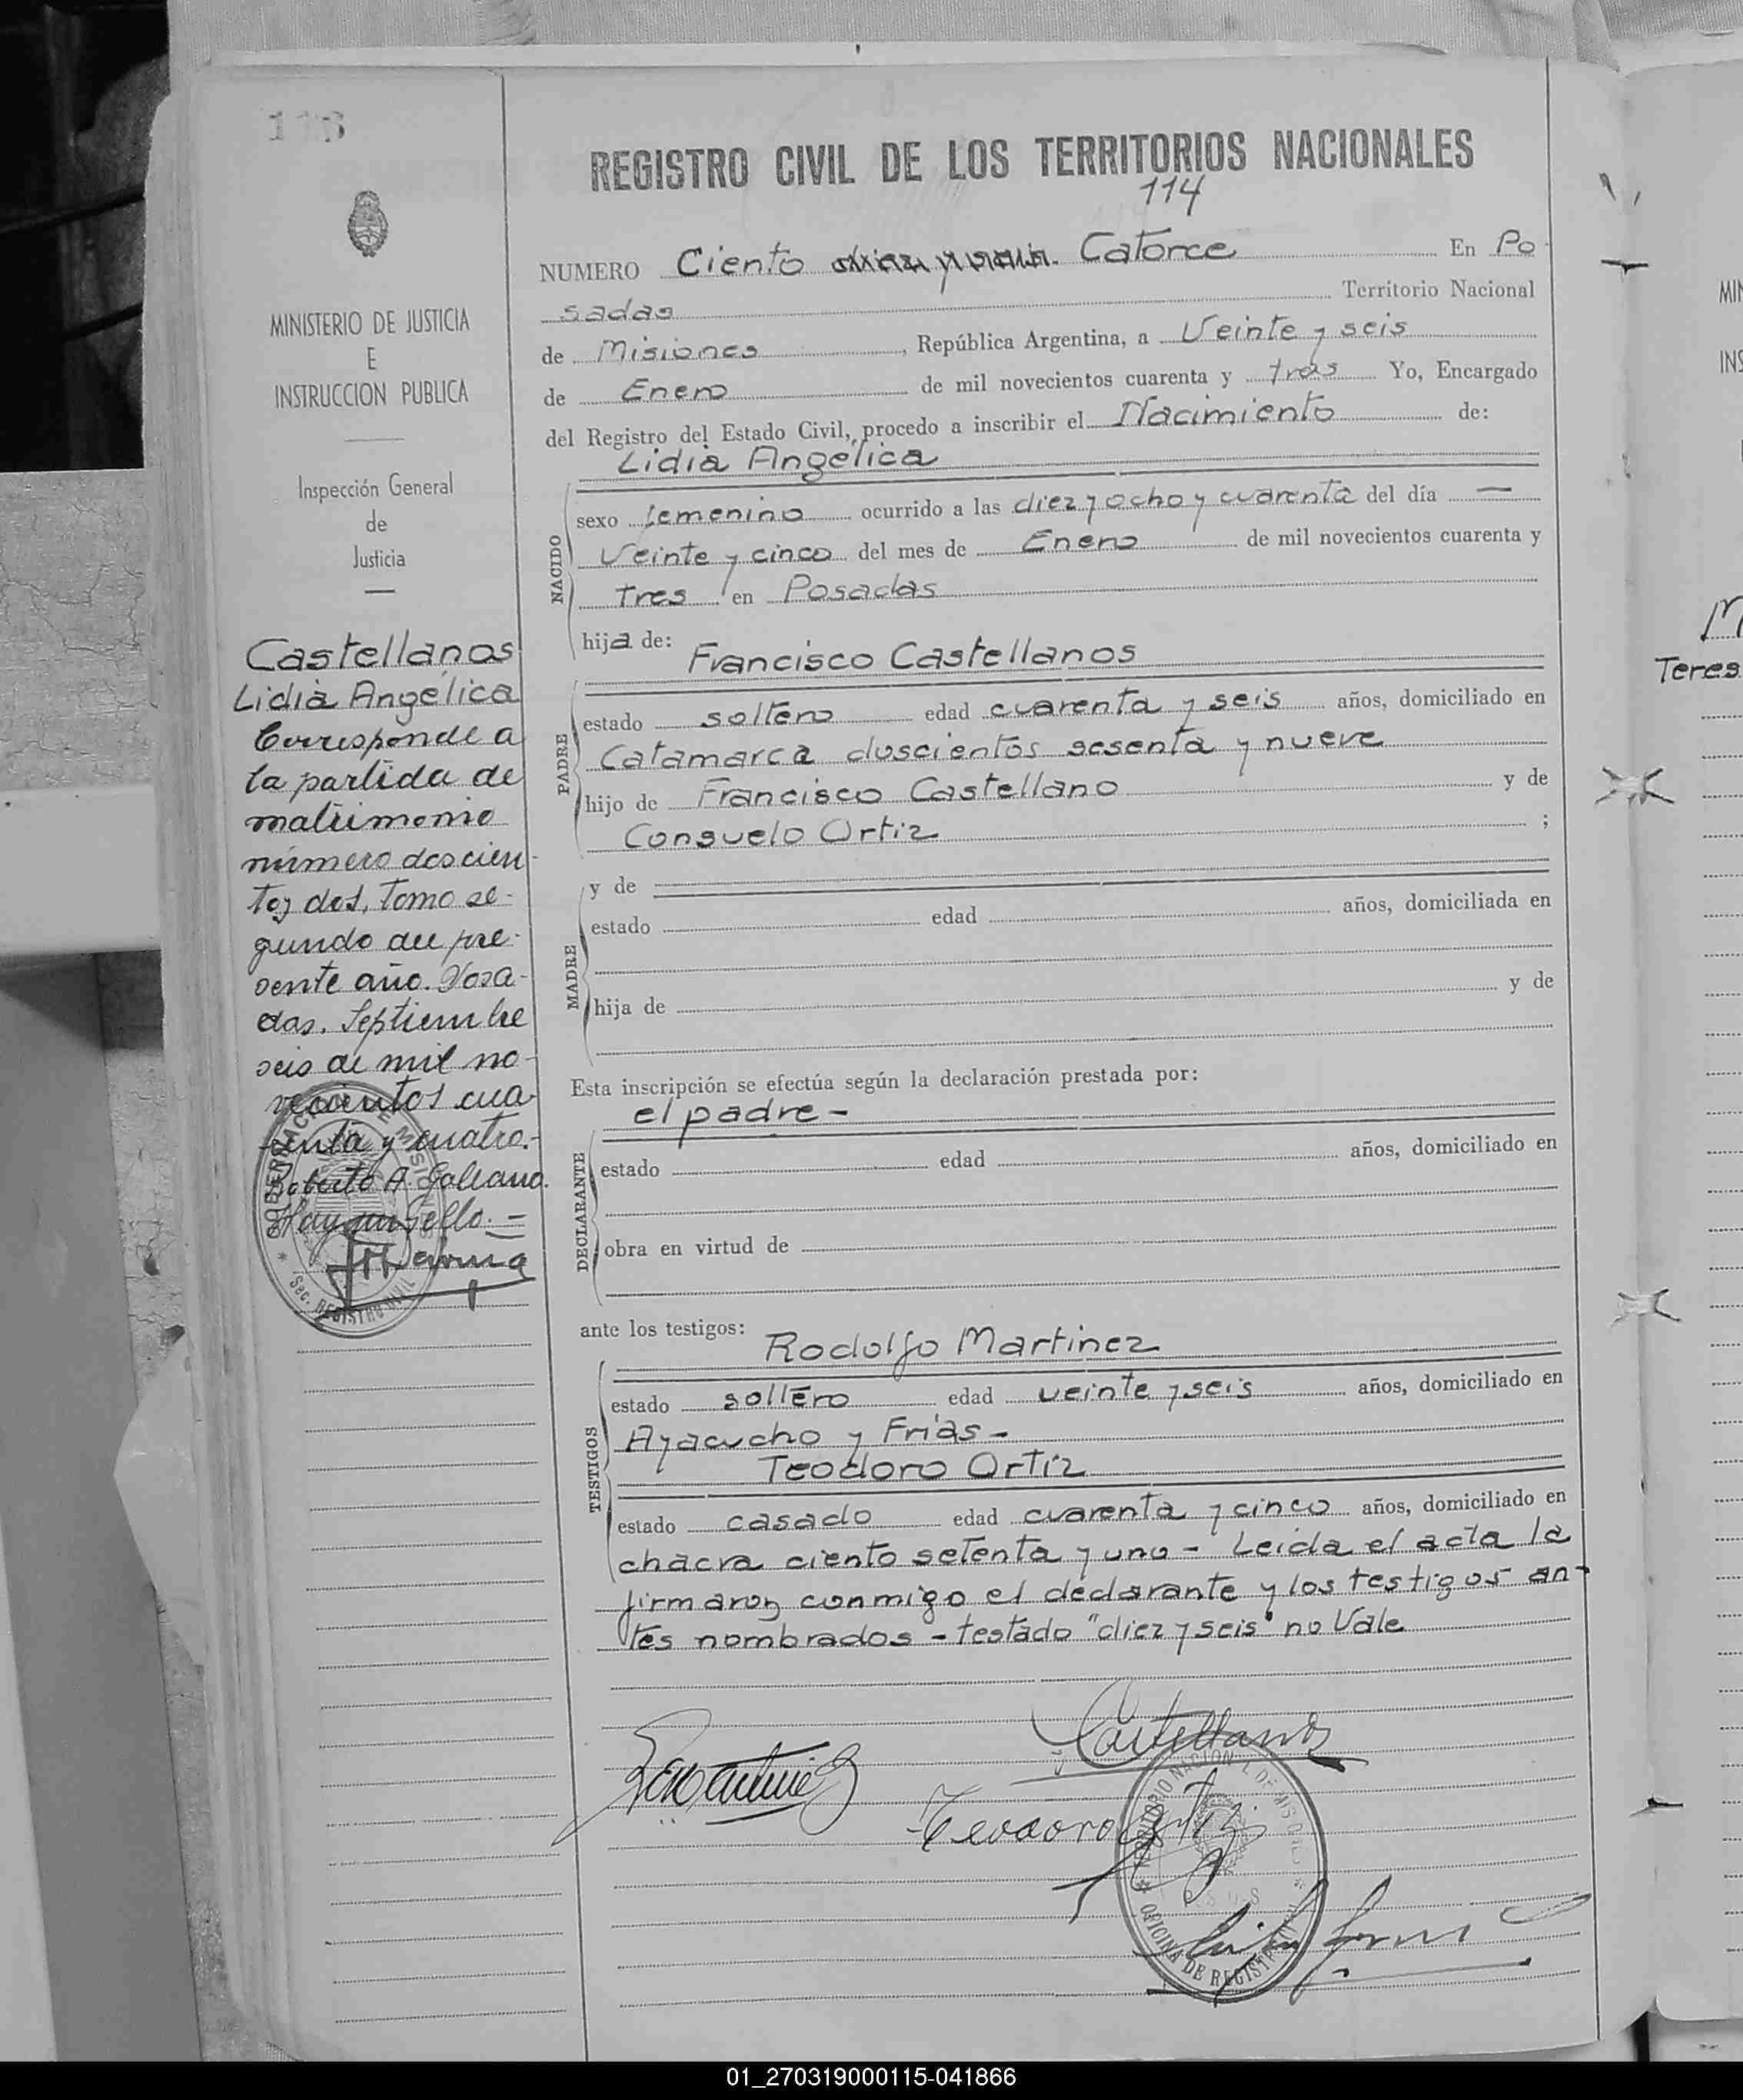 REGISTRO CIVIL DE LOS TERRITORIOS NACIONALES
114
NUMERO Ciento diez y seis. Catorce En Po
sadas Territorio Nacional
de Misiones, República Argentina, a Veinte y seis
de Enero de mil novecientos cuarenta y tres Yo, Encargado
del Registro del Estado Civil, procedo a inscribir el Nacimiento de:
Lidia Angélica
NACIDO
sexo femenino ocurrido a las diez y ocho y cuarenta del día —
Veinte y cinco del mes de Enero de mil novecientos cuarenta y
tres en Posadas
hija de:
Francisco Castellanos
PADRE
estado soltero edad cuarenta y seis años, domiciliado en
Catamarca duscientos sesenta y nueve
hijo de Francisco Castellano y de
Consuelo Ortiz ;
MADRE
y de
estado edad años, domiciliada en
hija de y de
Esta inscripción se efectúa según la declaración prestada por:
el padre -
DECLARANTE
estado edad años, domiciliado en
obra en virtud de
ante los testigos:
Rodolfo Martinez
TESTIGOS
estado soltero edad veinte y seis años, domiciliado en
Ayacucho y Frias -
Teodoro Ortiz
estado casado edad cuarenta y cinco años, domiciliado en
chacra ciento setenta y uno - Leida el acta la
firmaron conmigo el declarante y los testigos an-
tes nombrados - testado "diez y seis" no Vale
Castellanos
Teodoro Ortiz
TERRITORIO NACIONAL DE MISIONES
OFICINA DE REGISTRO
MINISTERIO DE JUSTICIA
E
INSTRUCCION PUBLICA
Inspección General
de
Justicia
Castellanos
Lidia Angélica
Corresponde a
la partida de
matrimonio
número doscien-
tos dos, Tomo se-
gundo del pre-
sente año. Posa-
das. Septiembre
seis de mil no-
vecientos cua-
renta y cuatro.-
Roberto A. Galeano.
Hay un sello. -
GOBERNACION DE MISIONES
Sec. REGISTRO CIVIL
MIN
INS
M
Teres
01_270319000115-041866